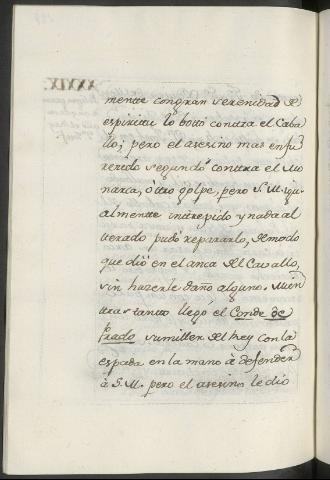 XXXIX.
mente con gran serenidad de
espiritu lo botó contra el Caba
llo; pero el asesino mas enfu
recido segundó contra el Mo
narca, otro golpe, pero S. M. igu
almente intrepido y nada al
terado pudo repararlo, de modo
que dió en el anca del Cavallo,
sin hazerle daño alguno. Mien
tras tanto llegó el Conde de
Prado sumiller del Rey con la
espada en la mano à defender
à S. M. pero el asesino le dió